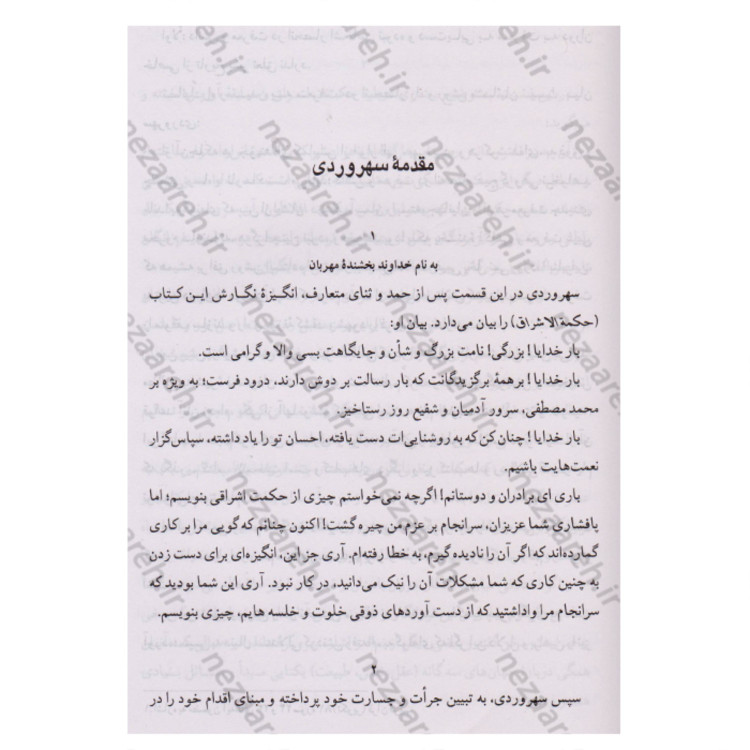 مقدمهٔ سهروردی
۱
به نام خداوند بخشندهٔ مهربان
سهروردی در این قسمت پس از حمد و ثنای متعارف، انگیزهٔ نگارش این کتاب
(حکمةالاشراق) را بیان می‌دارد. بیان او:
بار خدایا! بزرگی! نامت بزرگ و شأن و جایگاهت بسی والا و گرامی است.
بار خدایا! بر همهٔ برگزیدگانت که بار رسالت بر دوش دارند، درود فرست؛ به ویژه بر
محمد مصطفی، سرور آدمیان و شفیع روز رستاخیز.
بار خدایا! چنان کن که به روشنایی‌ات دست یافته، احسان تو را یاد داشته، سپاس‌گزار
نعمت‌هایت باشیم.
باری ای برادران و دوستانم! اگرچه نمی‌خواستم چیزی از حکمت اشراقی بنویسم؛ اما
پافشاری شما عزیزان، سرانجام بر عزم من چیره گشت! اکنون چنانم که گویی مرا بر کاری
گمارده‌اند که اگر آن را نادیده گیرم، به خطا رفته‌ام. آری جز این، انگیزه‌ای برای دست زدن
به چنین کاری که شما مشکلات آن را نیک می‌دانید، در کار نبود. آری این شما بودید که
سرانجام مرا واداشتید که از دست آوردهای ذوقی خلوت و خلسه هایم، چیزی بنویسم.
۲
سپس سهروردی، به تبیین جرأت و جسارت خود پرداخته و مبنای اقدام خود را در
nezaareh.ir
nezaareh.ir
nezaareh.ir
nezaareh.ir
nezaareh.ir
nezaareh.ir
nezaareh.ir
nezaareh.ir
nezaareh.ir
nezaareh.ir
nezaareh.ir
nezaareh.ir